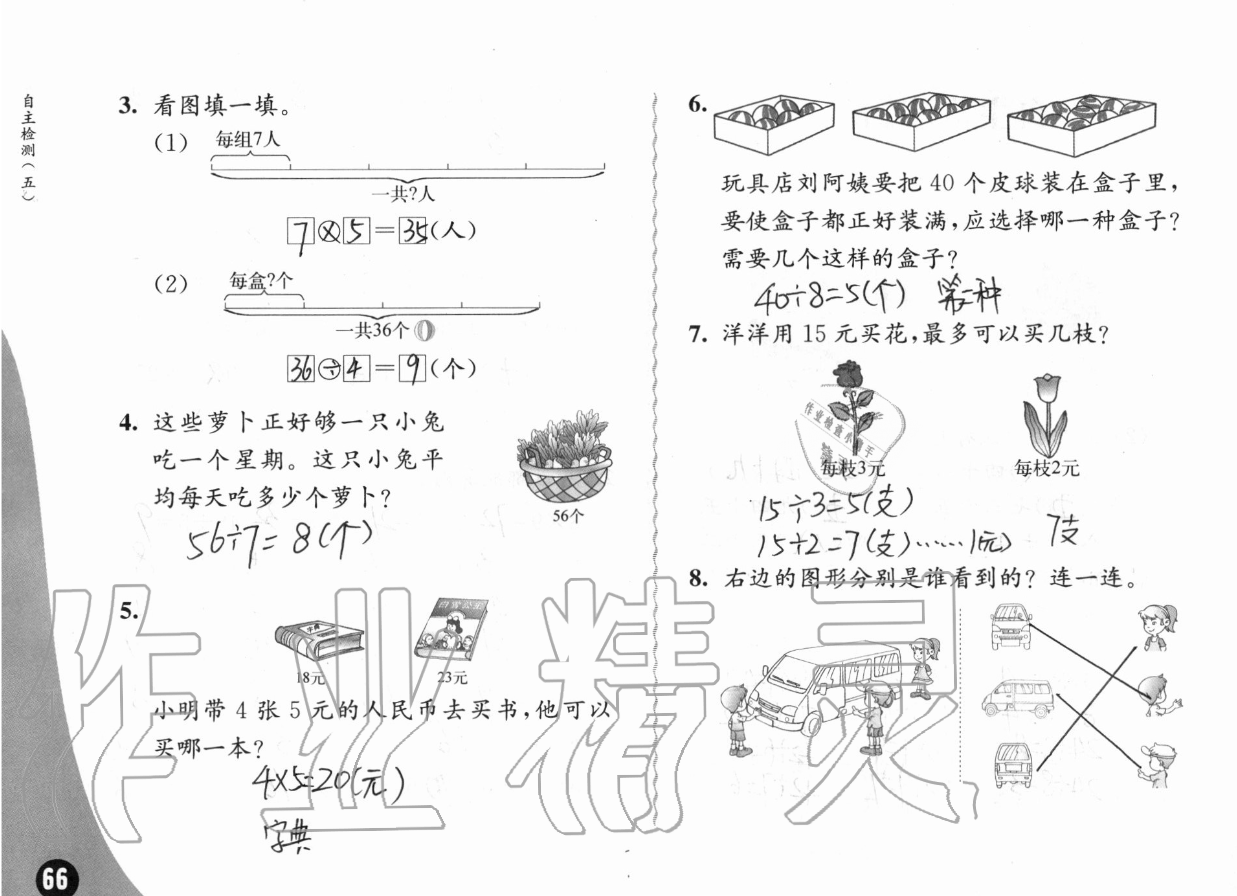 自主检测(五)
3. 看图填一填。
(1) 每组7人
一共?人
7×5=35(人)
(2) 每盒?个
一共36个
36÷4=9(个)
4. 这些萝卜正好够一只小兔
吃一个星期。这只小兔平
均每天吃多少个萝卜?
56个
56÷7=8(个)
5.
字典
18元 23元
小明带 4 张 5 元的人民币去买书,他可以
买哪一本?
4×5=20(元)
字典
66
6.
玩具店刘阿姨要把 40 个皮球装在盒子里,
要使盒子都正好装满,应选择哪一种盒子?
需要几个这样的盒子?
40÷8=5(个) 第二种
7. 洋洋用 15 元买花,最多可以买几枝?
每枝3元 每枝2元
15÷3=5(支)
15÷2=7(支)……1(元) 7支
8. 右边的图形分别是谁看到的? 连一连。
作业精灵